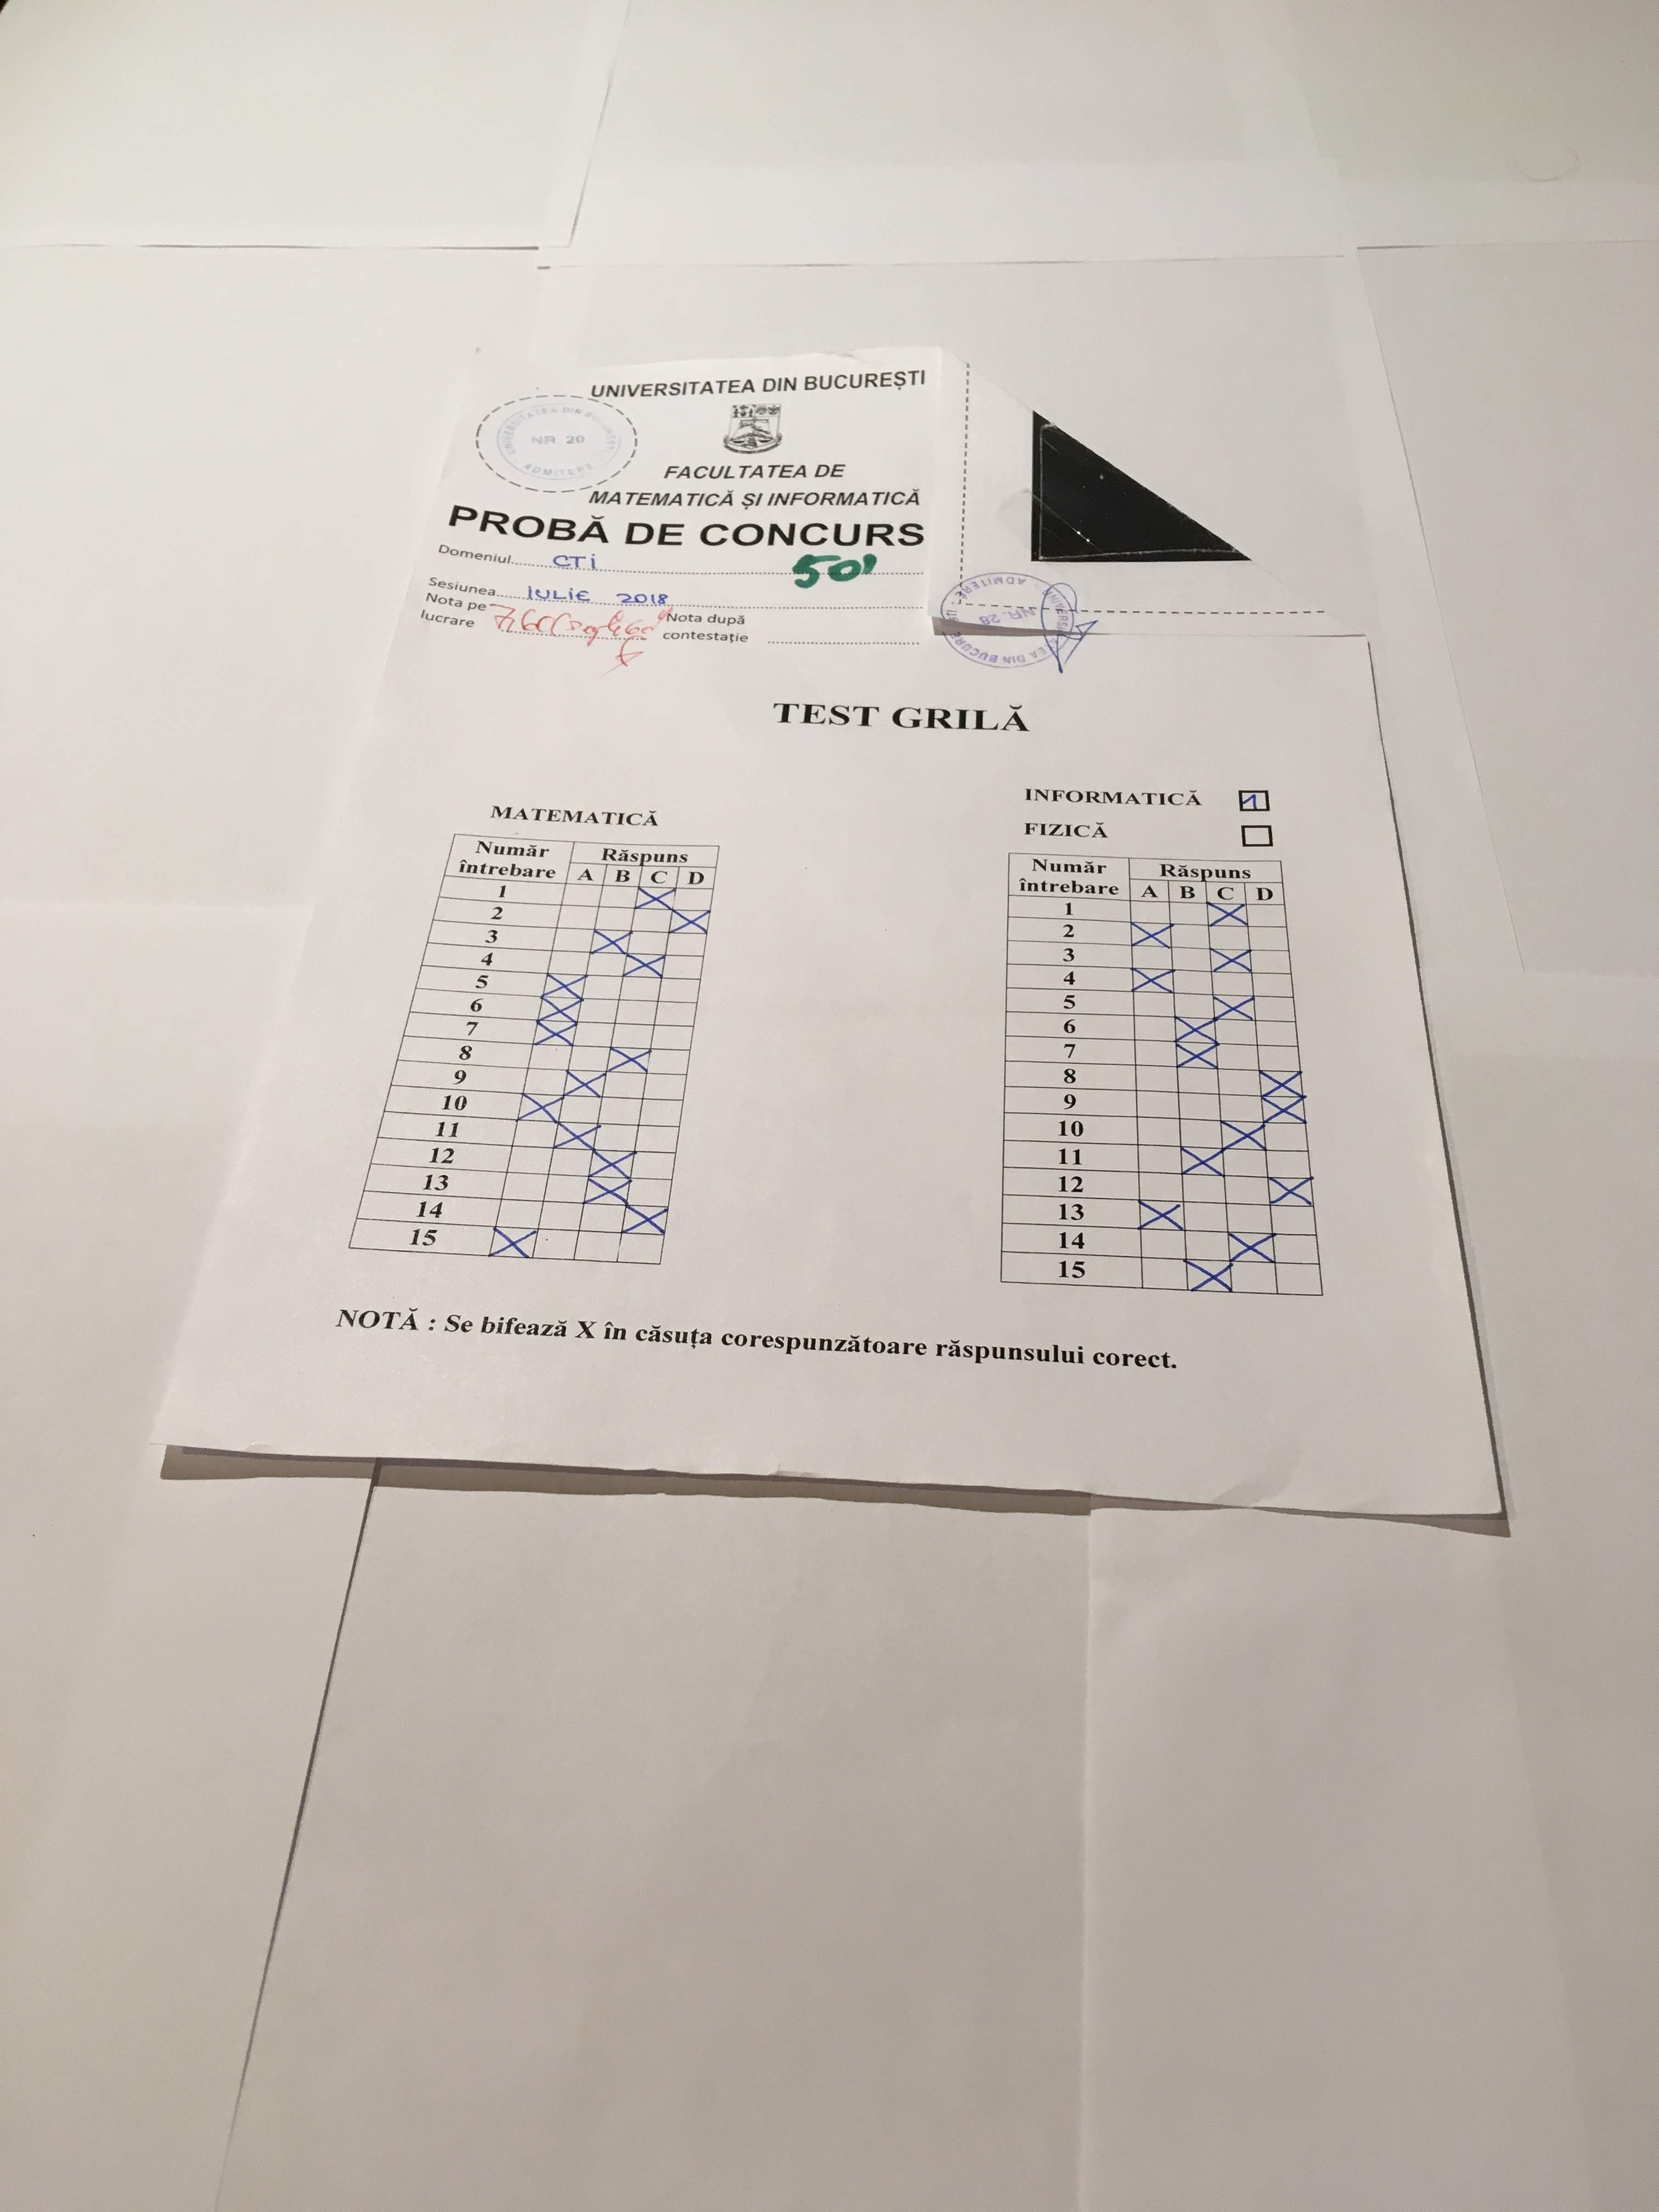 UNIVERSITATEA DIN BUCUREȘTI
UNIVERSITATEA DIN BUCUREȘTI
NR. 20
ADMITERE
FACULTATEA DE
MATEMATICĂ ȘI INFORMATICĂ
PROBĂ DE CONCURS
Domeniul CTi 501
Sesiunea iULiE 2018
Nota pe lucrare 7,60 Nota după contestație
ADMITERE
NR. 28
UNIVERSITATEA DIN BUCUREȘTI
TEST GRILĂ
MATEMATICĂ
Număr întrebare Răspuns
A B C D
1 X
2 X
3 X
4 X
5 X
6 X
7 X
8 X
9 X
10 X
11 X
12 X
13 X
14 X
15 X
INFORMATICĂ 1
FIZICĂ
Număr întrebare Răspuns
A B C D
1 X
2 X
3 X
4 X
5 X
6 X
7 X
8 X
9 X
10 X
11 X
12 X
13 X
14 X
15 X
NOTĂ : Se bifează X în căsuța corespunzătoare răspunsului corect.